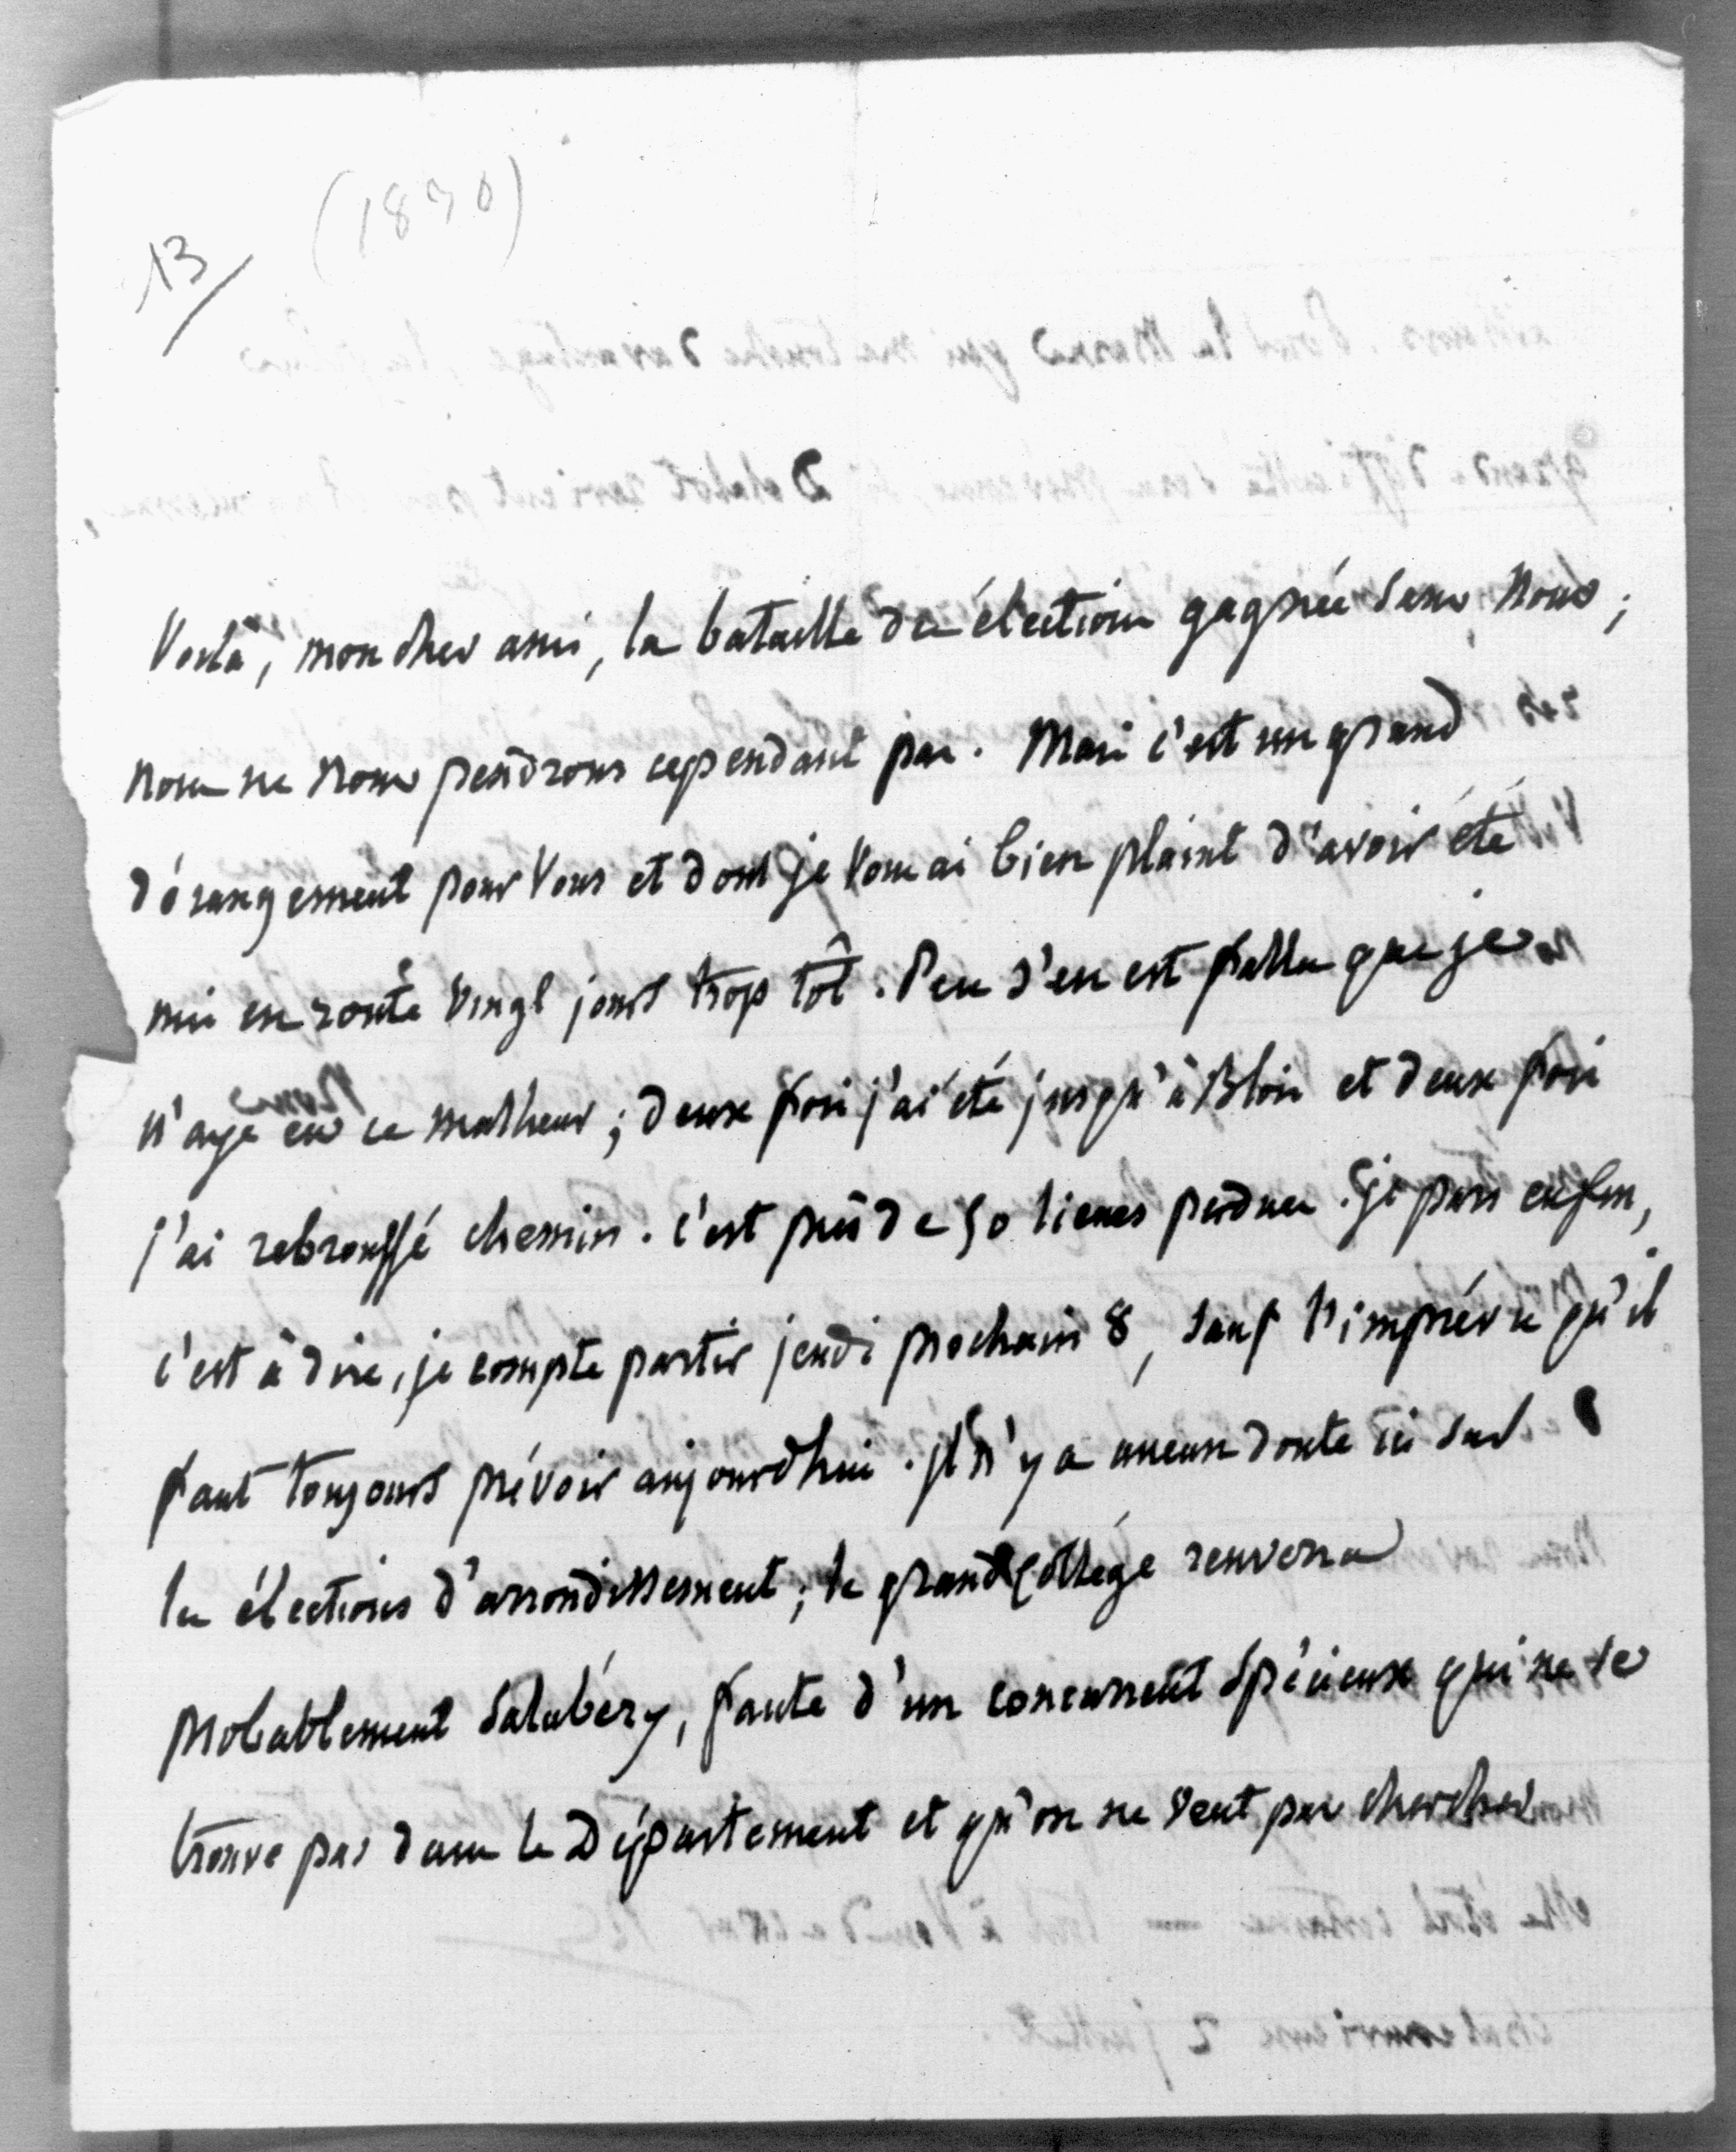 (1830)
13
Voilà, mon cher ami, la bataille des élections gagnée sans nous;
nous ne nous pendrons cependant pas. Mais c'est un grand
dérangement pour vous et dont je vous ai bien plaint d'avoir été
mis en route vingt jours trop tôt. Peu s'en est fallu que je
n'aye eu ce malheur; deux fois j'ai été jusqu'à Blois et deux fois
j'ai rebroussé chemin. c'est près de 50 lieues perdues. Je pars enfin,
c'est à dire, je compte partir jeudi prochain 8, sauf l'imprévu qu'il
faut toujours prévoir aujourdhui. Il n'y a aucun doute ici sur
les élections d'arrondissement; le grand collége renverra
probablement Salabéry, faute d'un concurrent spécieux qui ne se
trouve pas dans le Département et qu'on ne veut pas chercher